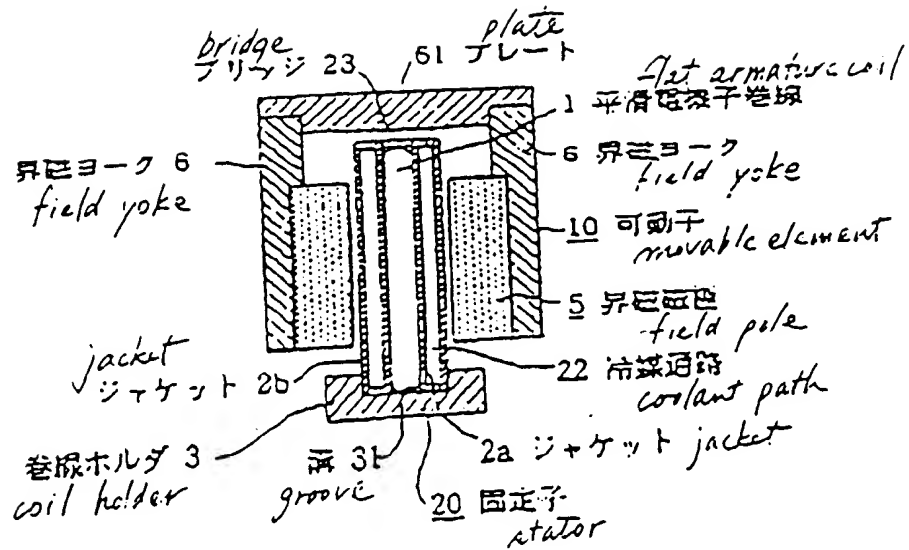 bridge
ブリッジ 23
plate
61 プレート
flat armature coil
1 平滑電機子巻線
界磁ヨーク 6
field yoke
6 界磁ヨーク
field yoke
10 可動子
movable element
5 界磁磁極
field pole
jacket
ジャケット 2b
22 冷媒通路
coolant path
2a ジャケット jacket
巻線ホルダ 3
coil holder
溝 31
groove
20 固定子
stator